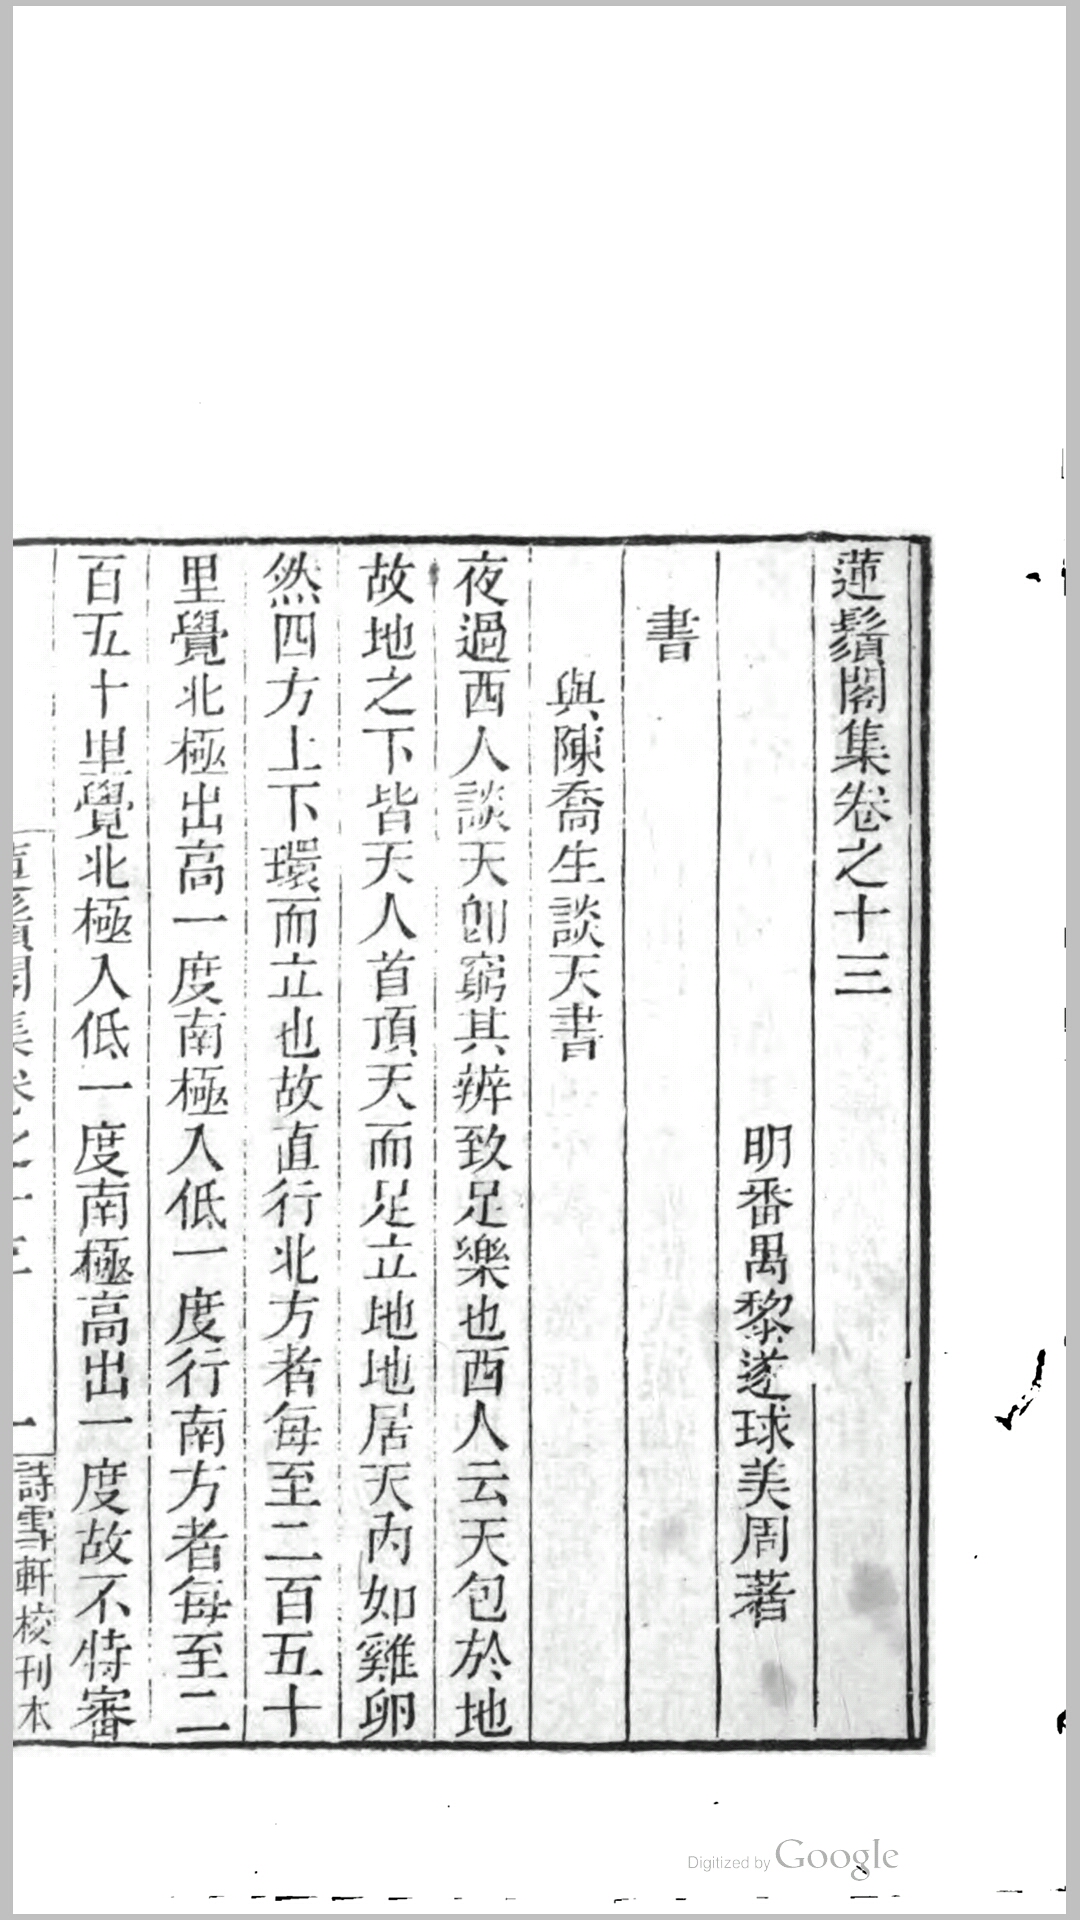 蓮鬚閣集卷之十三
明番禺黎遂球美周著
書
與陳喬生談天書
夜過西人談天卽窮其辨致足樂也西人云天包於地
故地之下皆天人首頂天而足立地地居天內如雞卵
然四方上下環而立也故直行北方者每至二百五十
里覺北極出高一度南極入低一度行南方者每至二
百五十里覺北極入低一度南極高出一度故不特審
詩雪軒校刊本
Digitized by Google